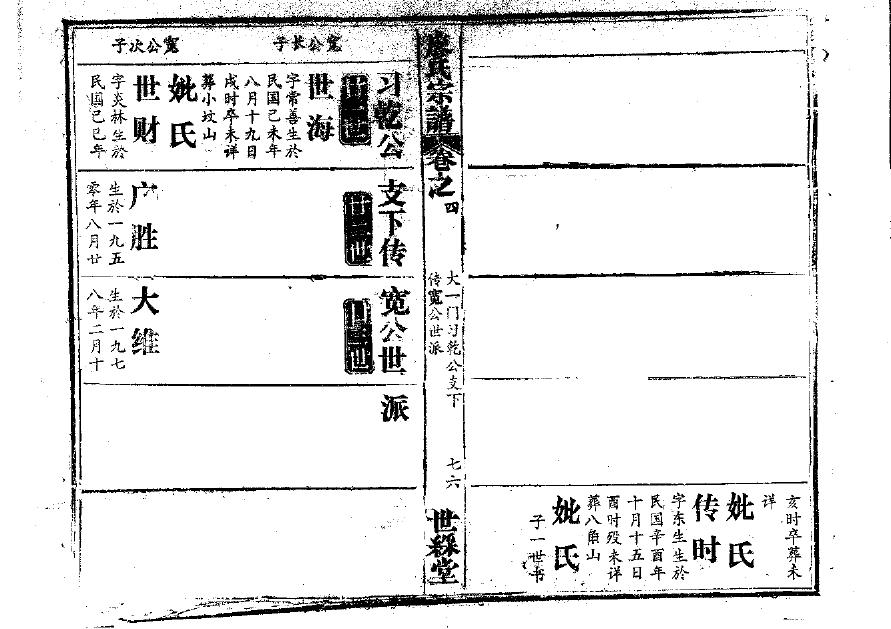 亥时卒葬未
详
妣氏
传时
字东生生於
民国辛酉年
十月十五日
酉时殁未详
葬八角山
妣氏
子一世书
氏宗谱卷之四
大一门习乾公支下
传宽公世派
七六
世綵堂
习乾公支下传宽公世派
廿世
宽公长子
世海
字常善生於
民国己未年
八月十九日
戌时卒未详
葬小坟山
妣氏
宽公次子
世财
字炎林生於
民国己巳年
广胜
生於一九五
零年八月廿
大维
生於一九七
八年二月十